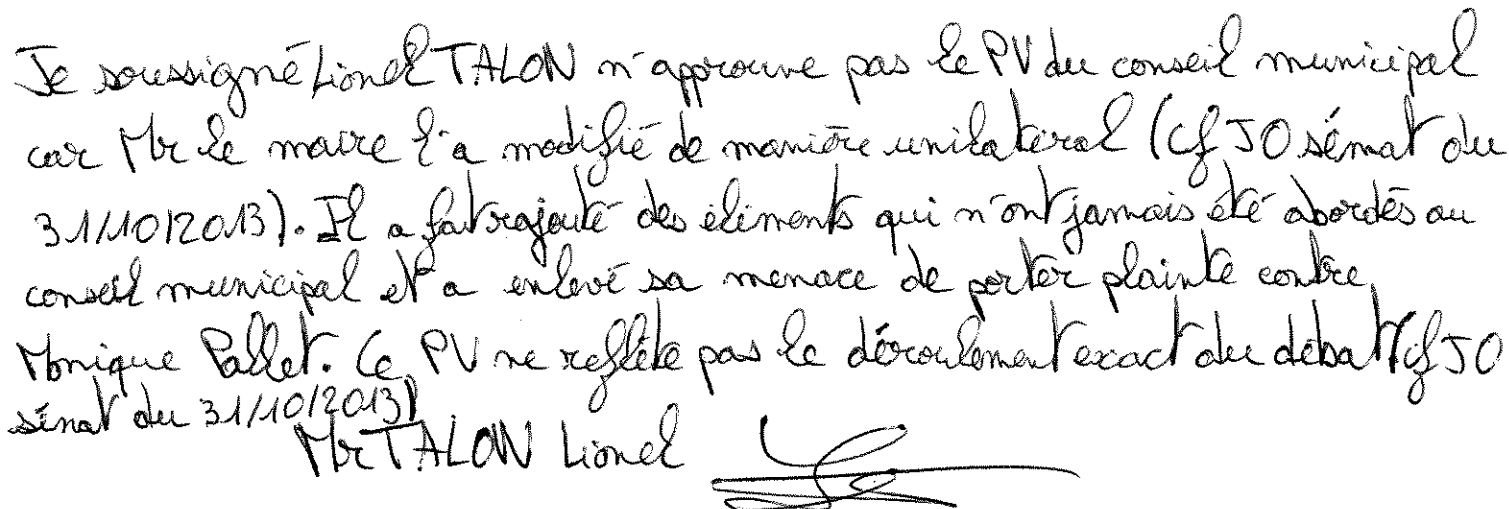 Je soussigné Lionel TALON n'approuve pas le PV du conseil municipal
car Mr le maire l'a modifié de manière unilatéral (cf JO sénat du
31/10/2013). Il a fait rajouté des éléments qui n'ont jamais été abordés au
conseil municipal et a enlevé sa menace de porter plainte contre
Monique Pallet. Ce PV ne reflète pas le déroulement exact du débat (cf JO
sénat du 31/10/2013)
Mr TALON Lionel